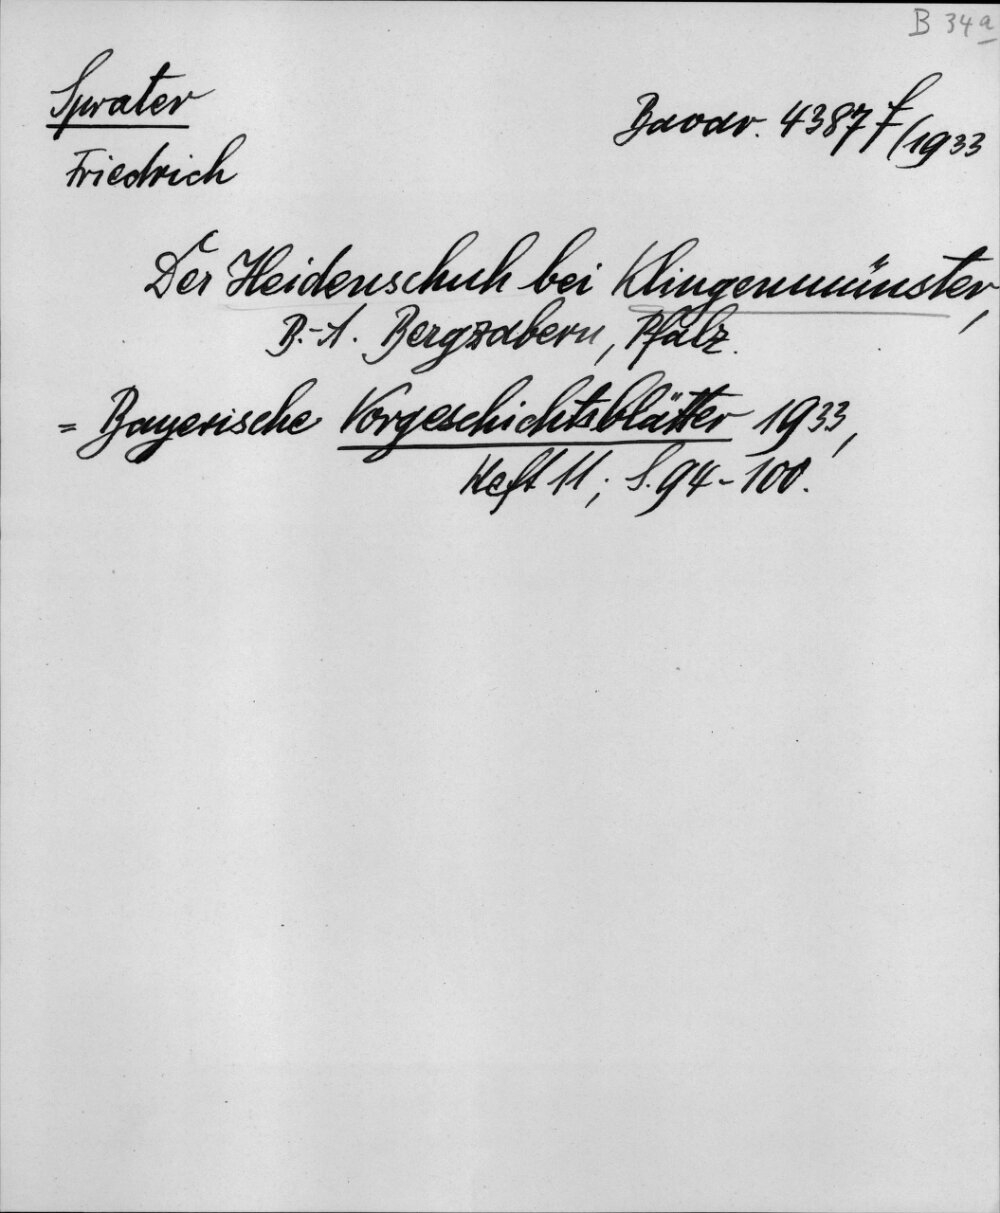 B 34a
Sprater
Friedrich
Bavar. 4387 f/1933
Der Heidenschuh bei Klingenmünster,
B.-A. Bergzabern, Pfalz.
= Bayerische Vorgeschichtsblätter 1933,
Heft 11; S. 94-100.